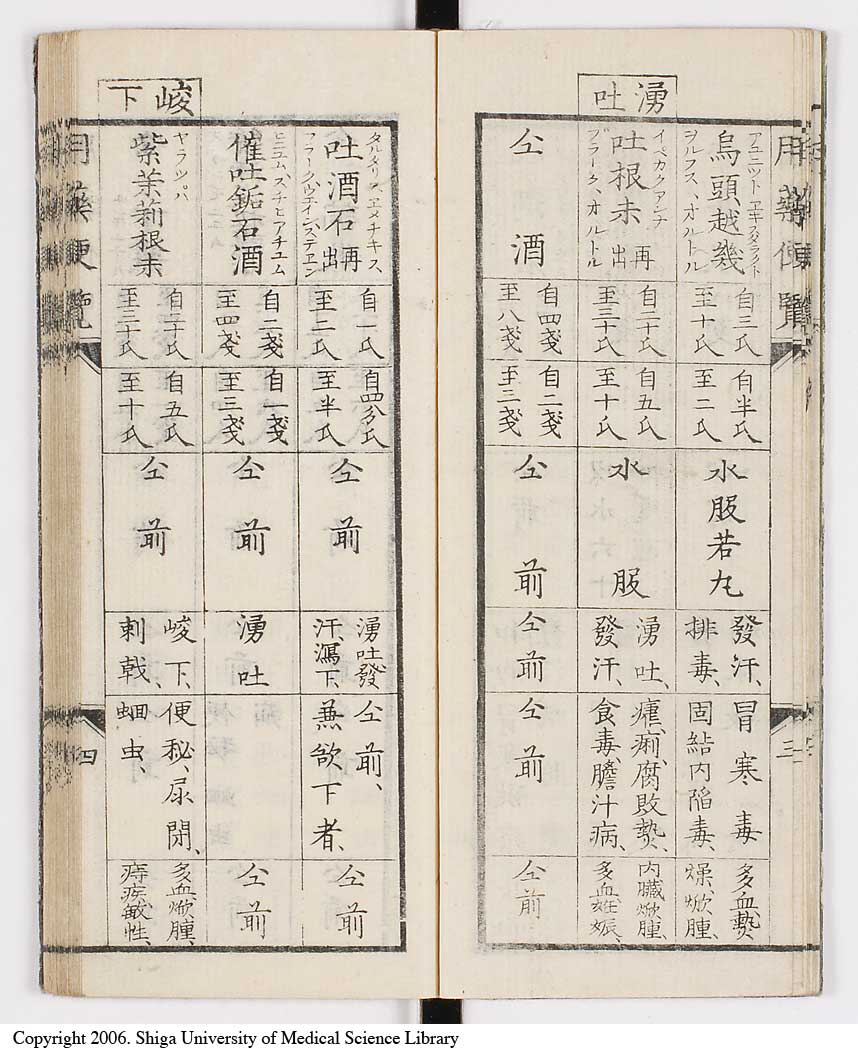 用藥便覽
三
湧吐
アコニツト ヱキスタラクト
烏頭越幾
ヲルフス、オルトル
自三氏
至十氏
自半氏
至二氏
水服若丸
發汗、
排毒、
冒寒毒
固結内陷毒、
多血𤍠
燥焮腫、
イペカクアンナ
吐根末 再出
ブラーク、オルトル
自二十氏
至三十氏
自五氏
至十氏
水服
湧吐、
發汗、
痢、腐敗𤍠、
食毒、膽汁病、
内臓焮腫、
多血、妊娠、
仝酒
自四戔
至八戔
自二戔
至三戔
仝前
仝前
仝前
仝前
タルタリス、ヱメチキス
吐酒石 再出
ブラークウェインステエン
自一氏
至二氏
自四分氏
至半氏
仝前
湧吐發
汗、瀉下、
仝前、
兼欲下者、
仝前
ヒニユム、スチヒアチユム
催吐鉐石酒
自二戔
至四戔
自一戔
至三戔
仝前
湧吐
仝前
峻下
ヤラツパ
紫茉莉根末
自二十氏
至三十氏
自五氏
至十氏
仝前
峻下、
刺戟、
便秘、尿閉、
蛔虫、
多血、焮腫、
痔疾、敏性、
用藥便覽
四
Copyright 2006. Shiga University of Medical Science Library